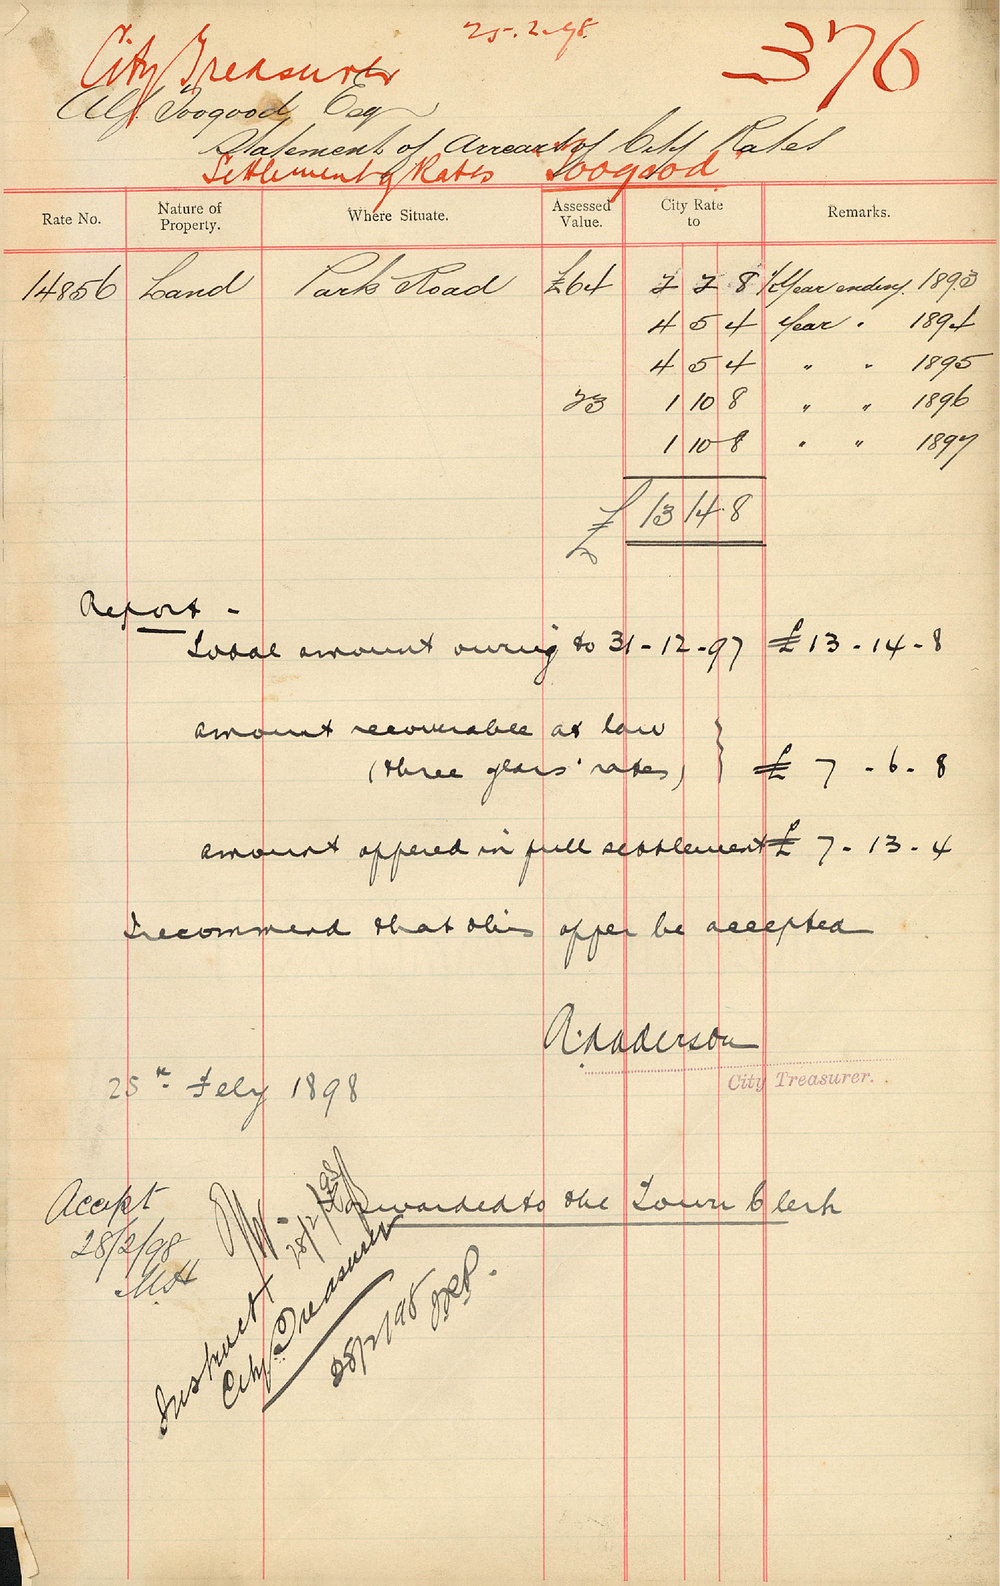 25.2.98.
376
City Treasurer
Alf. Toogood, Esq
Statement of Arrears of City Rates
Settlement of Rates "Toogood"
Rate No.
Nature of Property.
Where Situate.
Assessed Value.
City Rate to
Remarks.
14856 Land Park Road £64 2 2 8 ½ Year ending. 1893
4 5 4 Year " 1894
4 5 4 " " 1895
23 1 10 8 " " 1896
1 10 8 " " 1897
£ 13 14 8
Report -
Total amount owing to 31-12-97 £13-14-8
amount recoverable at law
(three years' rates) } £7-6-8
amount offered in full settlement £7-13-4
I recommend that this offer be accepted
City Treasurer.
25th Feby 1898
Forwarded to the Town Clerk
Accept
28/2/98
28/2/98
Instruct
City Treasurer
28/2/98